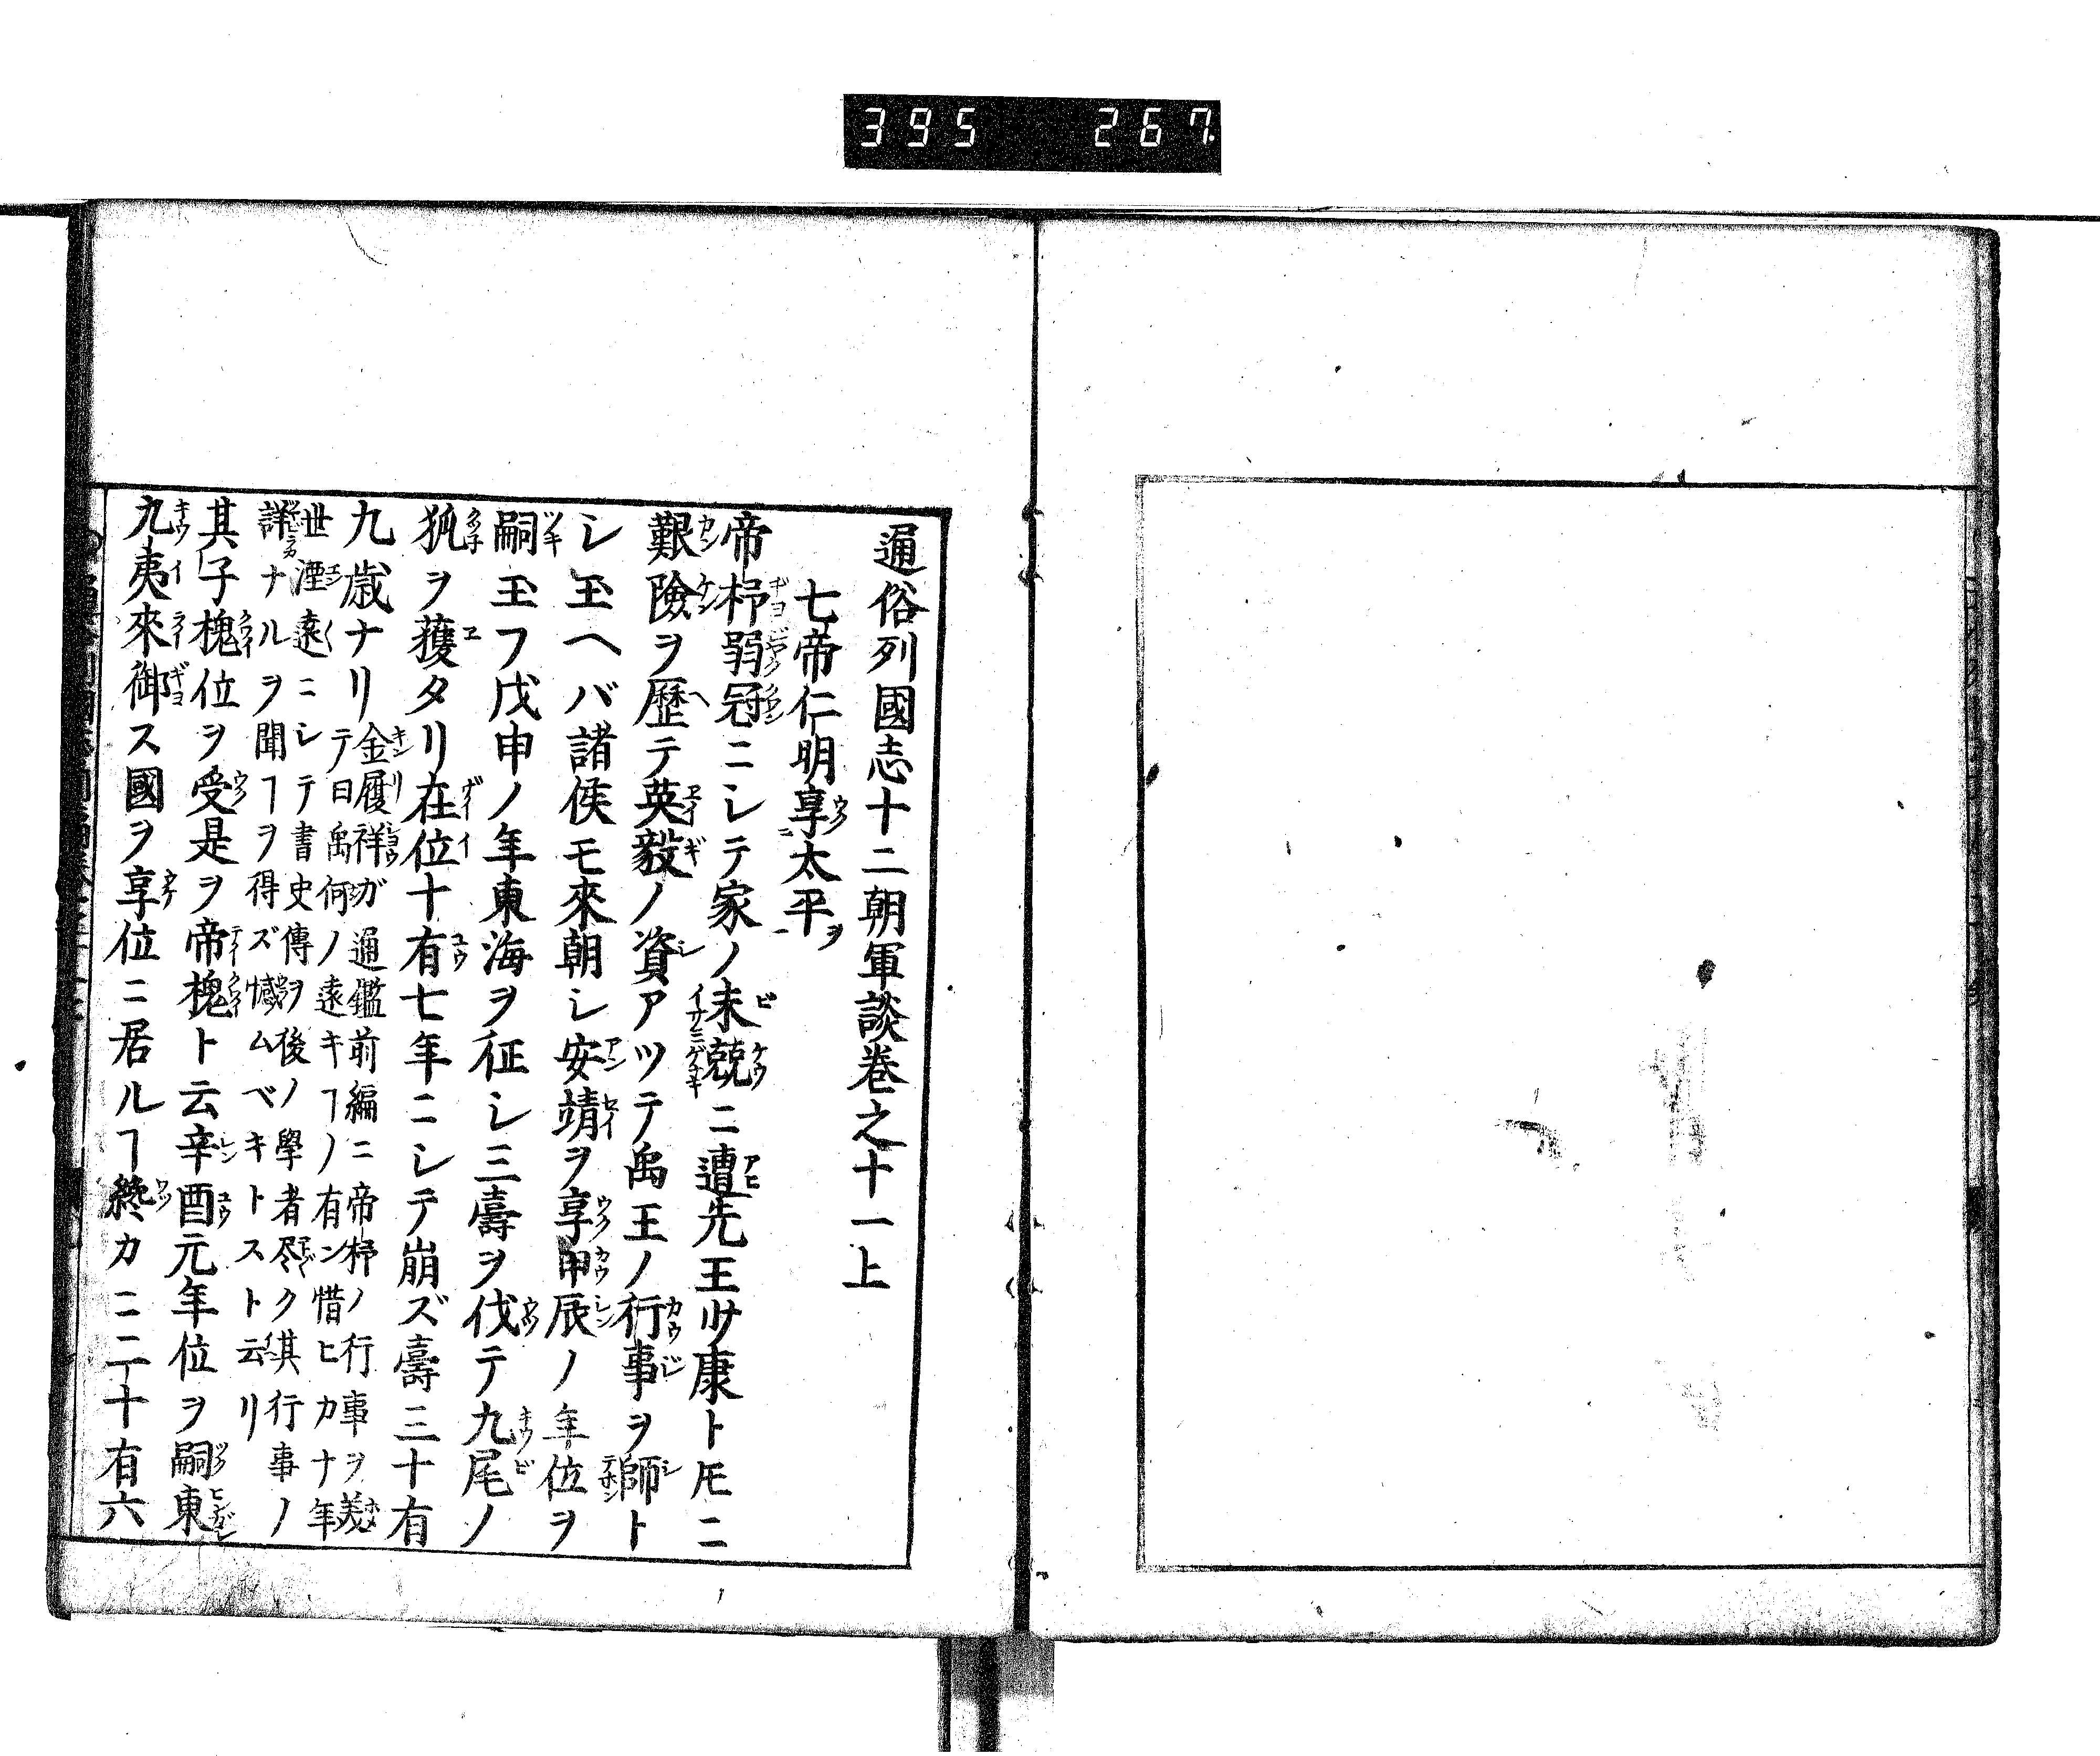 395 267
通俗列國志十二朝軍談卷之十一上
七帝仁明享太平ヲ
帝杼弱冠ニシテ家ノ未兢ニ遭先王少康トモニ
艱險ヲ歷テ英毅ノ資アツテ禹王ノ行事ヲ師ト
シ玉ヘバ諸侯モ來朝シ安靖ヲ享甲辰ノ年位ヲ
嗣玉フ戊申ノ年東海ヲ征シ三壽ヲ伐テ九尾ノ
狐ヲ獲タリ在位十有七年ニシテ崩ズ壽三十有
九歳ナリ
金履祥ガ通鑑前編ニ帝杼ノ行事ヲ美
テ曰禹何ノ遠キヿノ有ン惜ヒカナ年
世湮遠ニシテ書史傳ヲ後ノ學者尽ク其行事ノ
詳ナルヲ聞ヿヲ得ズ憾ムベキトスト云リ
其子槐位ヲ受是ヲ帝槐ト云辛酉元年位ヲ嗣東
九夷來御ス國ヲ享位ニ居ルヿ終カニ二十有六